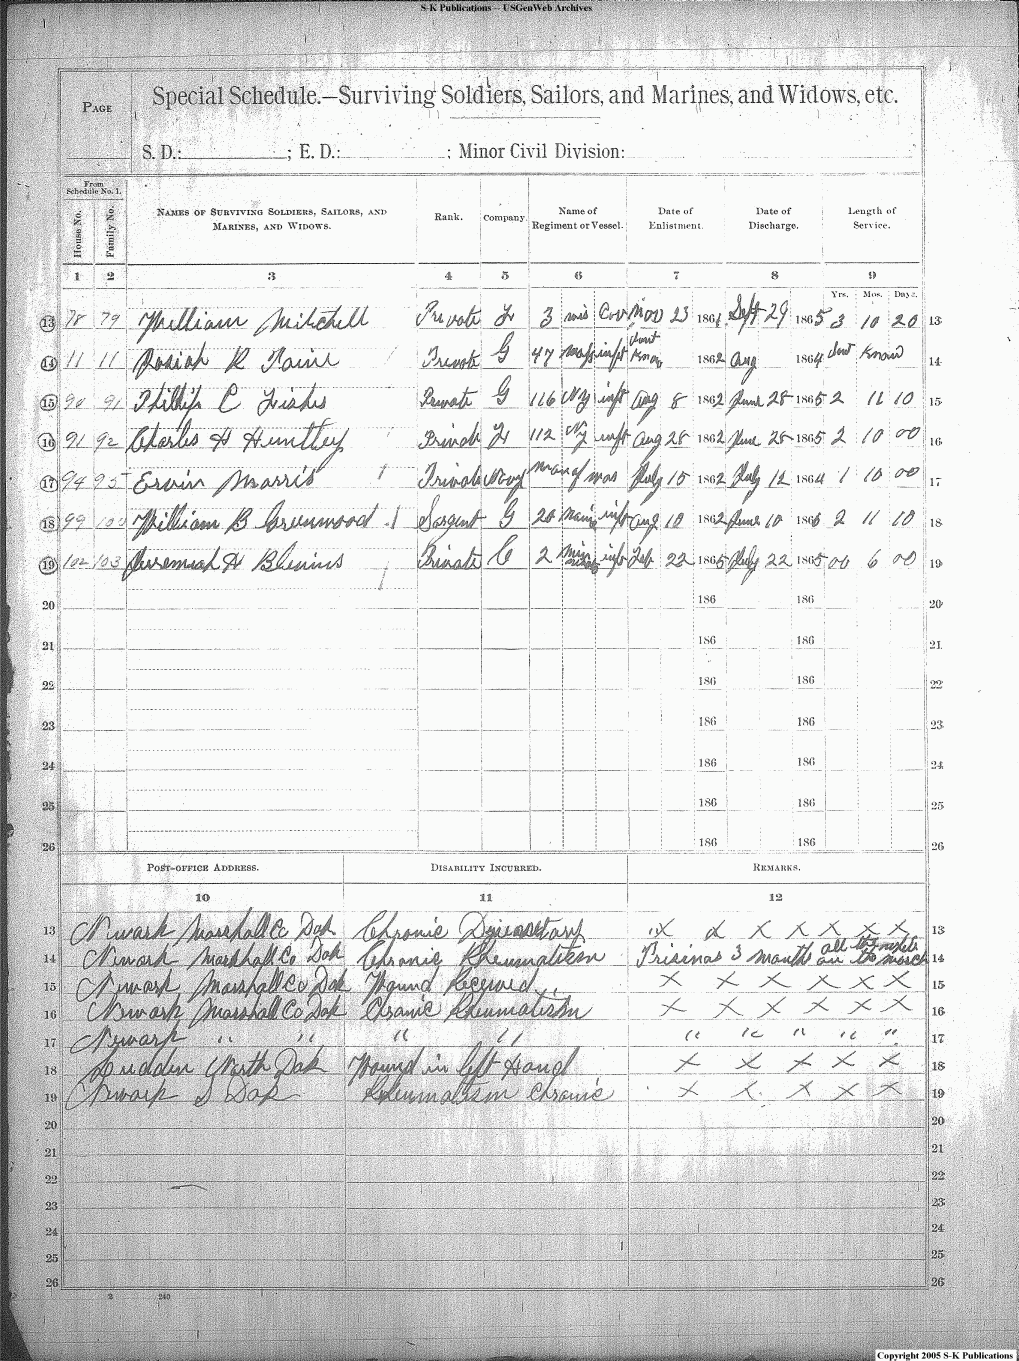 S-K Publications -- USGenWeb Archives
PAGE
Special Schedule.—Surviving Soldiers, Sailors, and Marines, and Widows, etc.
S. D.: ; E. D.: ; Minor Civil Division:
From Schedule No. 1.
House No. Family No. NAMES OF SURVIVING SOLDIERS, SAILORS, AND MARINES, AND WIDOWS. Rank. Company. Name of Regiment or Vessel. Date of Enlistment. Date of Discharge. Length of Service.
1 2 3 4 5 6 7 8 9
Yrs. Mos. Days.
13 78 79 William Mitchell Private 3 Cav Nov 23 1861 Sept 29 1865 3 10 20 13
14 11 11 R Private G 47 Mass inft dont Know 1862 Aug 1864 dont Know 14
15 90 91 Phillip C Private G 116 NY inft Aug 8 1862 June 28 1865 2 11 10 15
16 91 92 Charles H Huntley Private 112 NY inft Aug 28 1862 June 28 1865 2 10 00 16
17 94 95 Ervin Morris Private Navy Man of war July 15 1862 July 12 1864 1 10 00 17
18 99 100 William B Greenwood Sargent G 20 Maine inft Aug 10 1862 June 10 1865 2 11 10 18
19 102 103 Jeremiah H Blevins Private C 2 inft Feb 22 1865 July 22 1865 00 6 00 19
20 186 186 20
21 186 186 21
22 186 186 22
23 186 186 23
24 186 186 24
25 186 186 25
26 186 186 26
POST-OFFICE ADDRESS. DISABILITY INCURRED. REMARKS.
10 11 12
13 Newark Marshall Co Dak Chronic X X X X X 13
14 Newark Marshall Co Dak Chronic Rheumatism 3 months all the while on the march 14
15 Newark Marshall Co Dak Wound Received X X X X X X 15
16 Newark Marshall Co Dak Chronic Rheumatism X X X X X X 16
17 Newark " " " " " " " " " 17
18 North Dak Wound in left Hand X X X X X 18
19 Newark S Dak Rheumatism Chronic X X X X X 19
20 20
21 21
22 22
23 23
24 24
25 25
26 26
2 240
Copyright 2005 S-K Publications